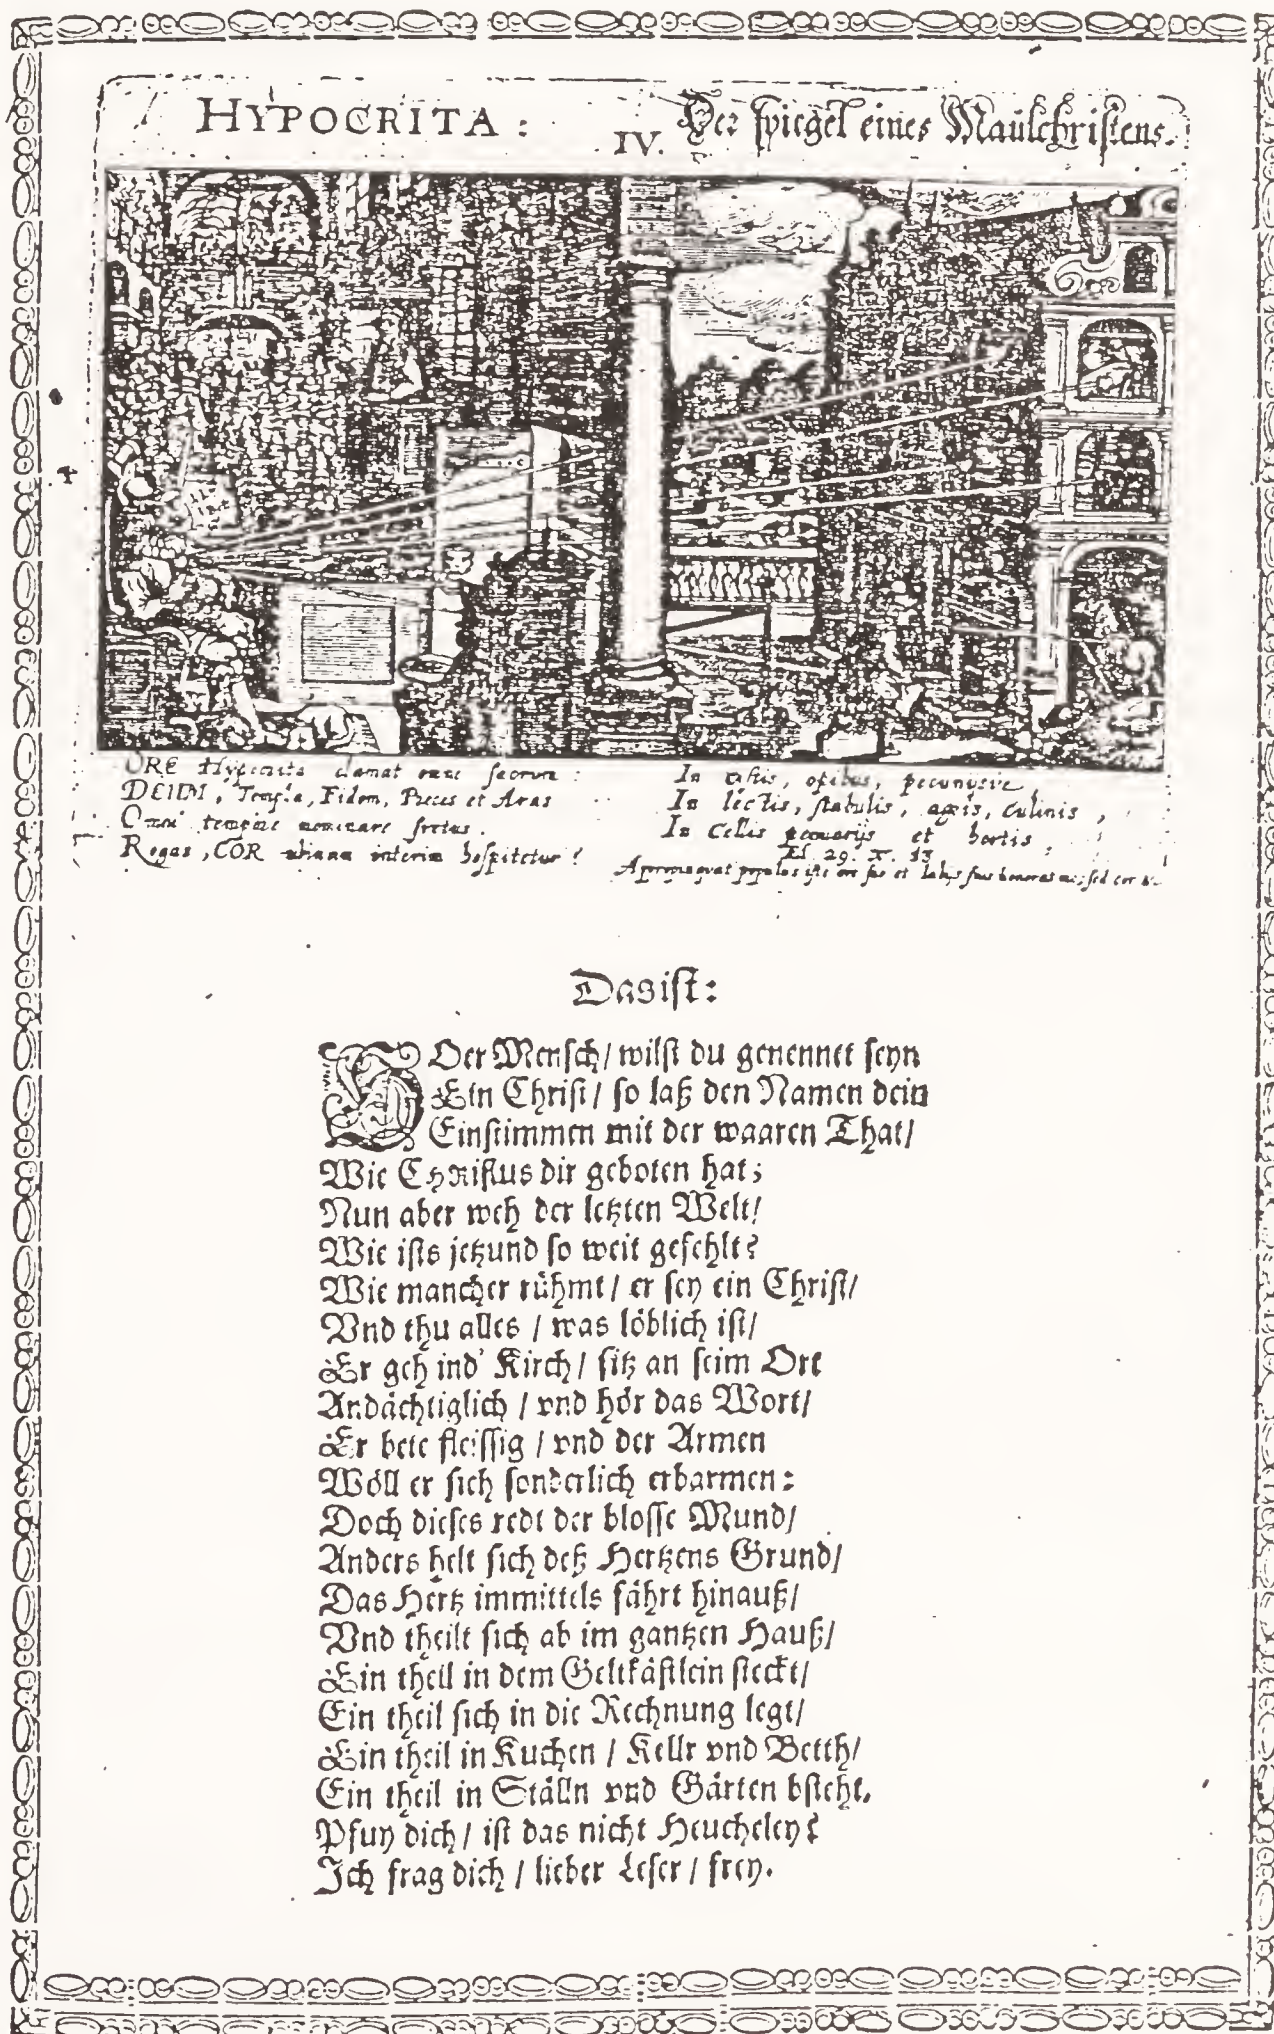 HYPOCRITA:
IV.
Der spiegel eines Maulchristens.
ORE Hypocrita clamat sacrum:
DEUM, Templa, Fidem, Preces et Aras
Omni tempore nominare fretus.
Rogas, COR ubinam interim hospitetur?
In cistis, opibus, pecunijsve
In lectis, stabulis, agris, culinis,
In Cellis et hortis,
29. 13
Appropinquat populus iste ore suo et labijs suis honorat me, sed cor
Das ist:
DEr Mensch/ wilst du genennet seyn
Ein Christ/ so laß den Namen dein
Einstimmen mit der waaren That/
Wie CHRistus dir geboten hat;
Nun aber weh der letzten Welt!
Wie ists jetzund so weit gefehlt?
Wie mancher rühmt/ er sey ein Christ/
Vnd thu alles/ was löblich ist/
Er geh ind' Kirch/ sitz an seim Ort
Andächtiglich/ vnd hör das Wort/
Er bete fleissig/ vnd der Armen
Wöll er sich sonderlich erbarmen:
Doch dieses redt der blosse Mund/
Anders helt sich deß Hertzens Grund/
Das Hertz immittels fährt hinauß/
Vnd theilt sich ab im gantzen Hauß/
Ein theil in dem Geltkästlein steckt/
Ein theil sich in die Rechnung legt/
Ein theil in Kuchen/ Kellr vnd Betth/
Ein theil in Ställn vnd Gärten bsteht.
Pfuy dich/ ist das nicht Heucheley?
Ich frag dich/ lieber Leser/ frey.